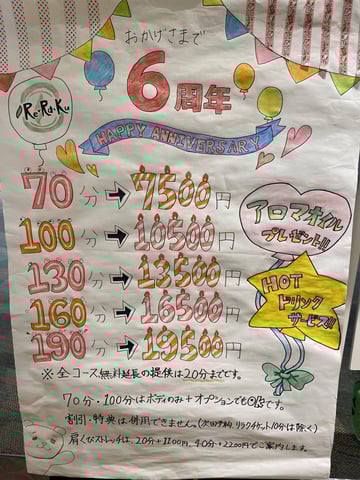 おかげさまで
Re.Ra.Ku
6周年
HAPPY ANNIVERSARY
70分→7500円
100分→10500円
130分→13500円
160分→16500円
190分→19500円
アロマオイル
プレゼント!!
HOT
ドリンク
サービス!!
※全コース無料延長の提供は20分までです。
70分・100分はボディのみ+オプションでもOKです。
割引・特典は併用できません。(次回予約、リラクチケット10分は除く)
肩くびストレッチは、20分+1100円、40分+2200円でご案内します。